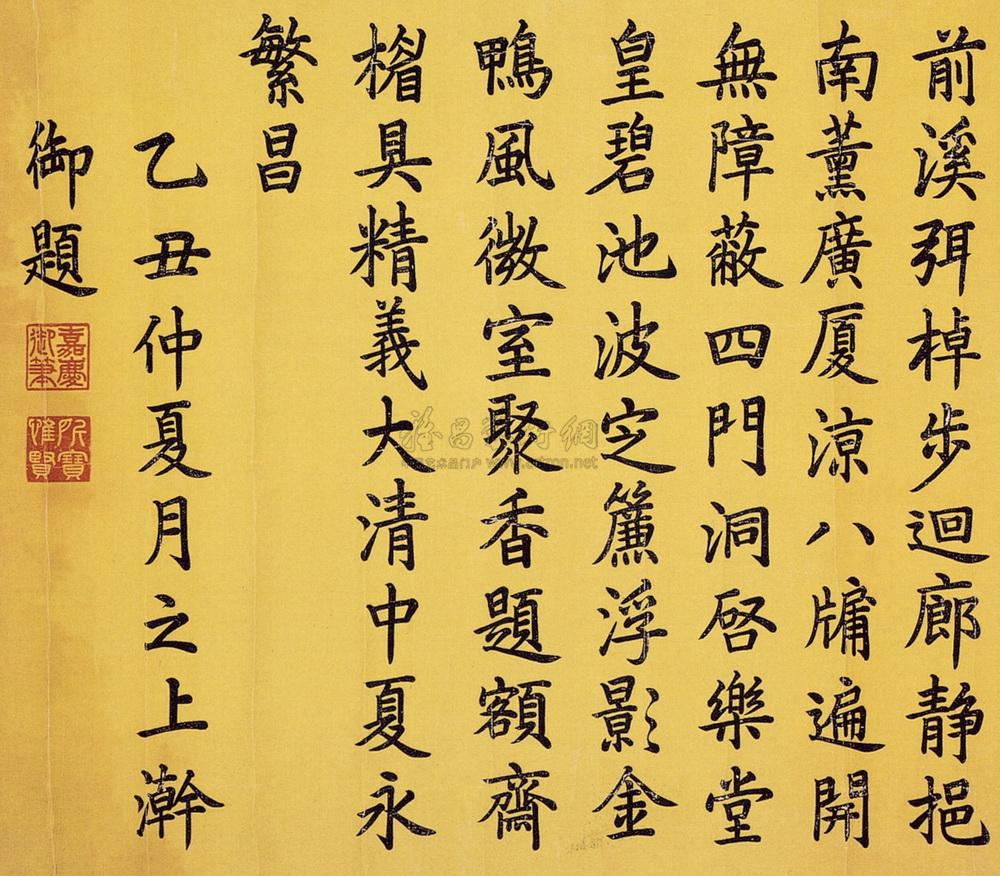 前溪弭棹步迴廊静挹
南薰廣厦涼八牗遍開
無障蔽四門洞启樂堂
皇碧池波㝎簾浮影金
鴨風微室聚香題額齋
楣具精義大清中夏永
繁昌
乙丑仲夏月之上澣
御題
嘉慶御筆
所寶惟賢